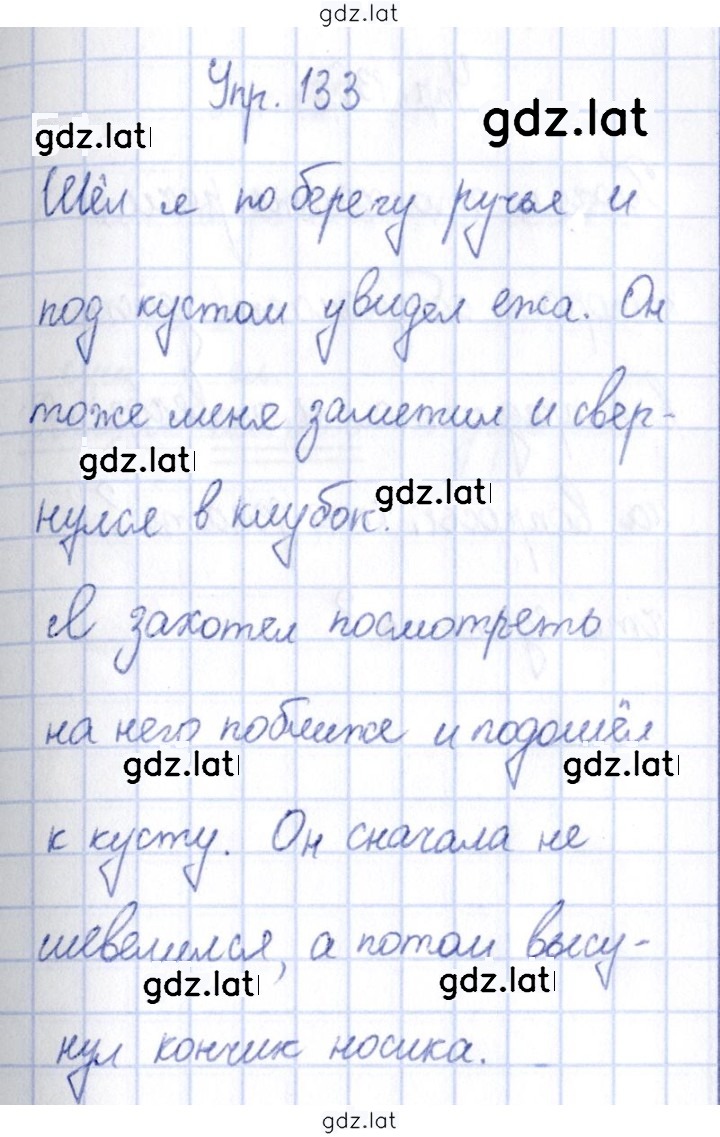 gdz.lat
Упр. 133
gdz.lat
gdz.lat
Шёл я по берегу ручья и
под кустом увидел ежа. Он
тоже меня заметил и свер-
gdz.lat
gdz.lat
нулся в клубок.
Я захотел посмотреть
на него поближе и подошёл
gdz.lat
gdz.lat
к кусту. Он сначала не
шевелился, а потом высу-
gdz.lat
gdz.lat
нул кончик носика.
gdz.lat